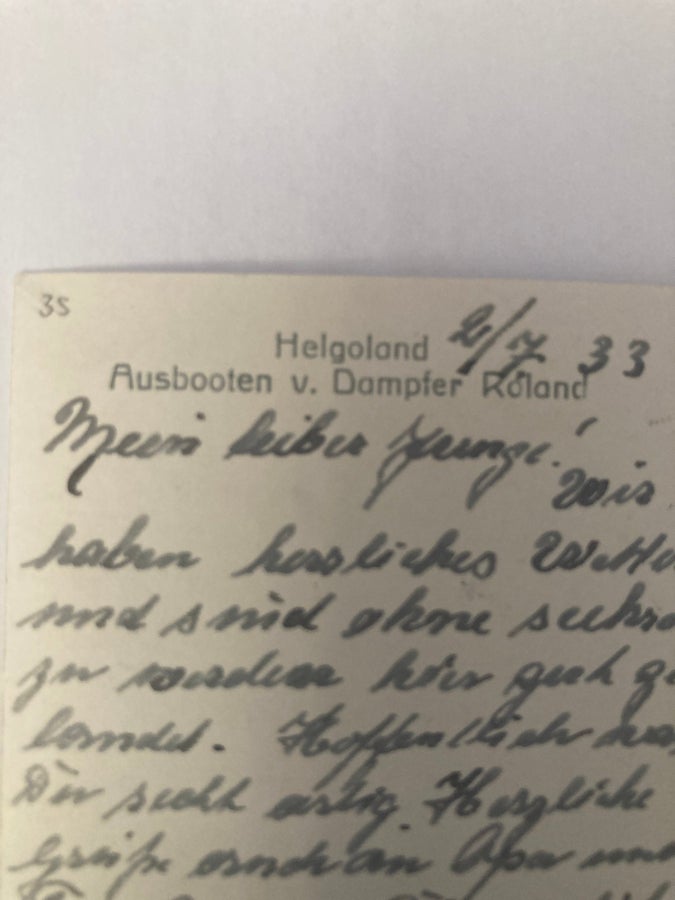 35
Helgoland 2/7 33
Ausbooten v. Dampfer Roland
Mein lieber Junge!
Wir
haben herrliches Wette
und sind ohne seekra
zu werden hier gut ge
landet. Hoffentlich
Du recht artig Herzliche
Grüße an Opa und